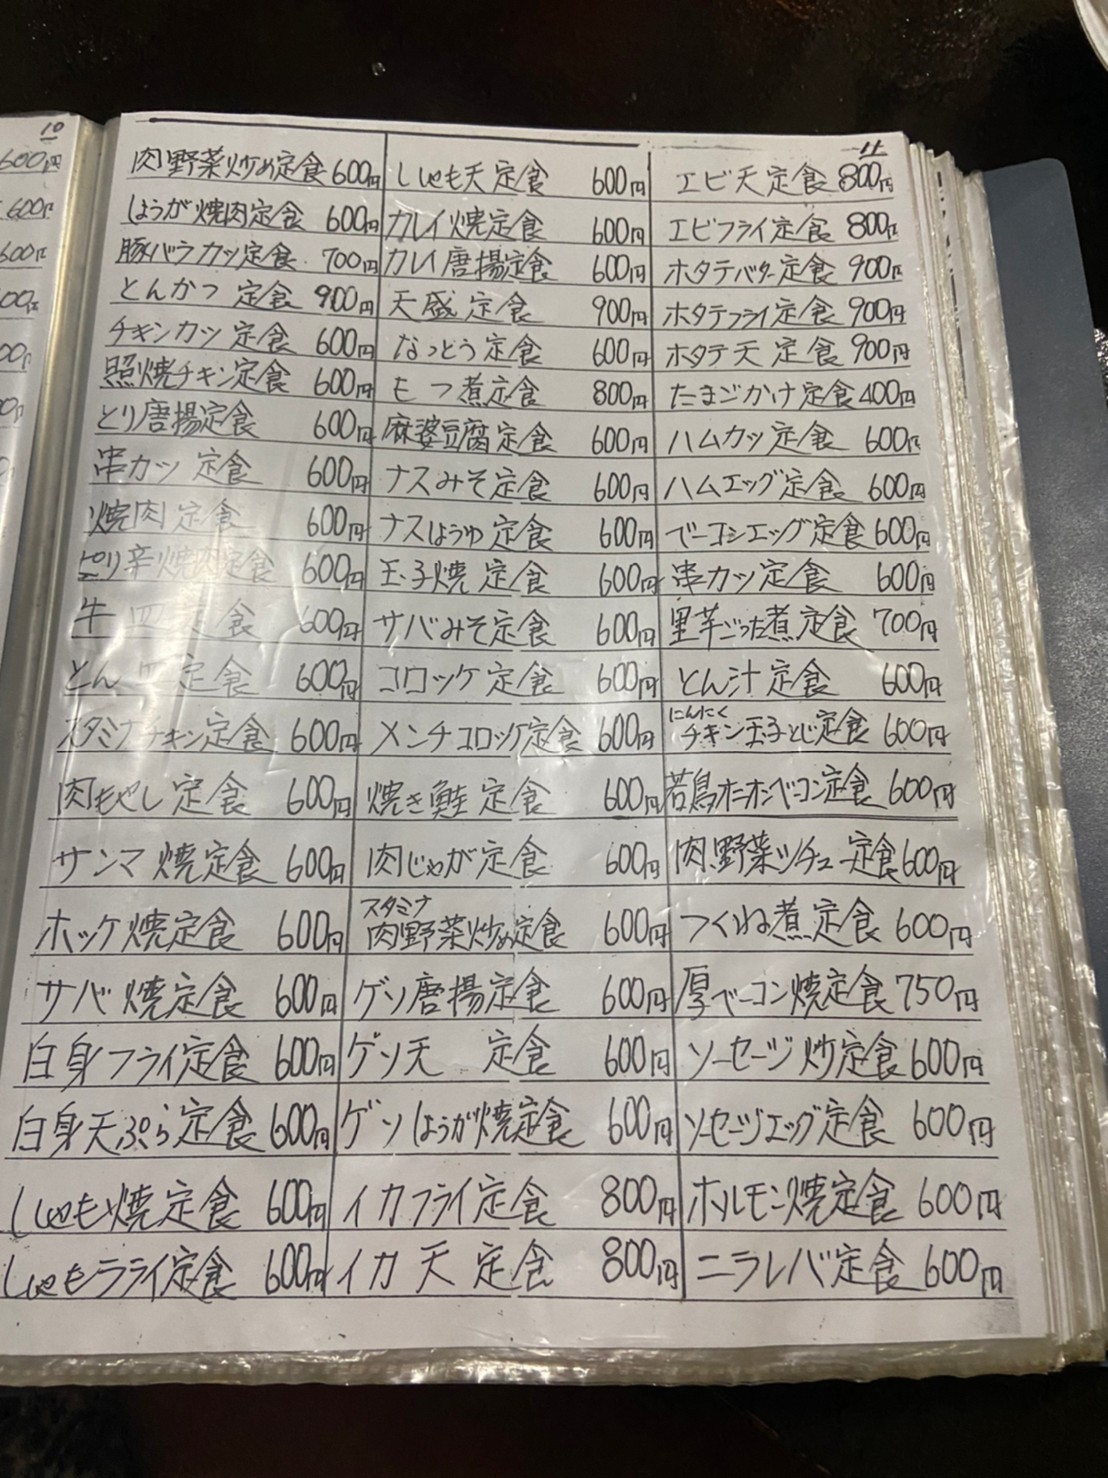 10
600円
600円
600円
11
肉野菜炒め定食 600円
しょうが焼肉定食 600円
豚バラカツ定食 700円
とんかつ定食 900円
チキンカツ定食 600円
照焼チキン定食 600円
とり唐揚定食 600円
串カツ定食 600円
焼肉定食 600円
ピリ辛焼肉定食 600円
牛皿定食 600円
とん皿定食 600円
スタミナチキン定食 600円
肉もやし定食 600円
サンマ焼定食 600円
ホッケ焼定食 600円
サバ焼定食 600円
白身フライ定食 600円
白身天ぷら定食 600円
ししゃも焼定食 600円
ししゃもフライ定食 600円
ししゃも天定食 600円
カレイ焼定食 600円
カレイ唐揚定食 600円
天盛定食 900円
なっとう定食 600円
もつ煮定食 800円
麻婆豆腐定食 600円
ナスみそ定食 600円
ナスしょうゆ定食 600円
玉子焼定食 600円
サバみそ定食 600円
コロッケ定食 600円
メンチコロッケ定食 600円
焼き鮭定食 600円
肉じゃが定食 600円
スタミナ
肉野菜炒め定食 600円
ゲソ唐揚定食 600円
ゲソ天定食 600円
ゲソしょうが焼定食 600円
イカフライ定食 800円
イカ天定食 800円
エビ天定食 800円
エビフライ定食 800円
ホタテバター定食 900円
ホタテフライ定食 900円
ホタテ天定食 900円
たまごかけ定食 400円
ハムカツ定食 600円
ハムエッグ定食 600円
ベーコンエッグ定食 600円
串カツ定食 600円
里芋ごった煮定食 700円
とん汁定食 600円
にんにく
チキン玉子とじ定食 600円
若鳥オニオンベーコン定食 600円
肉野菜シチュー定食 600円
つくね煮定食 600円
厚ベーコン焼定食 750円
ソーセージ炒定食 600円
ソーセージエッグ定食 600円
ホルモン焼定食 600円
ニラレバ定食 600円